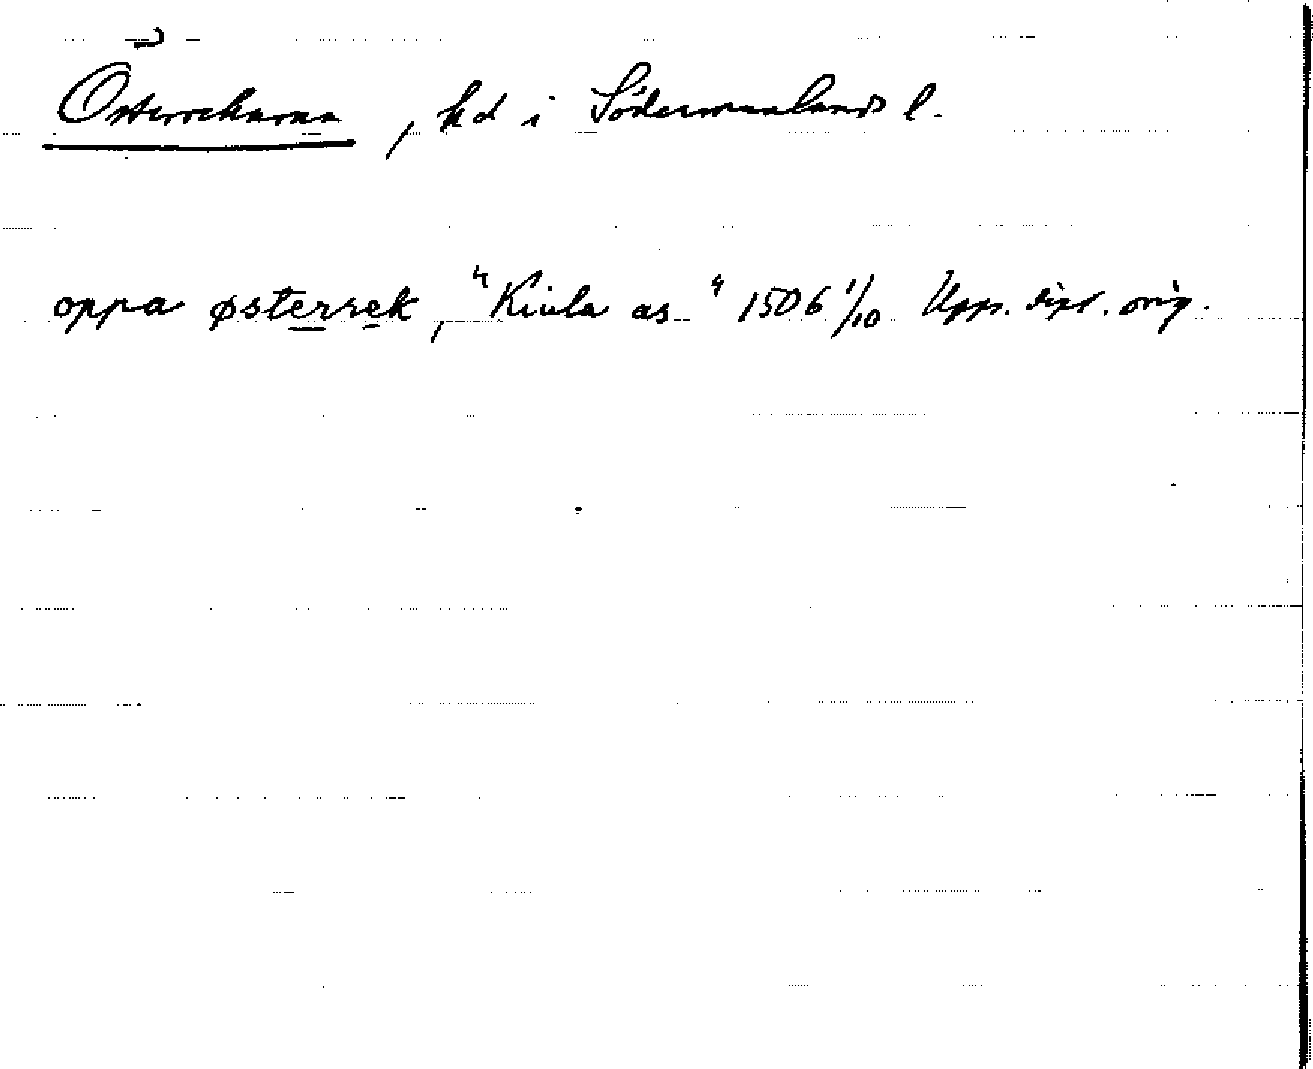 Österrekarne, hd i Södermanlands l.
oppa østerrek, "Kiula as" 1506 1/10 Upps. dipl. orig.